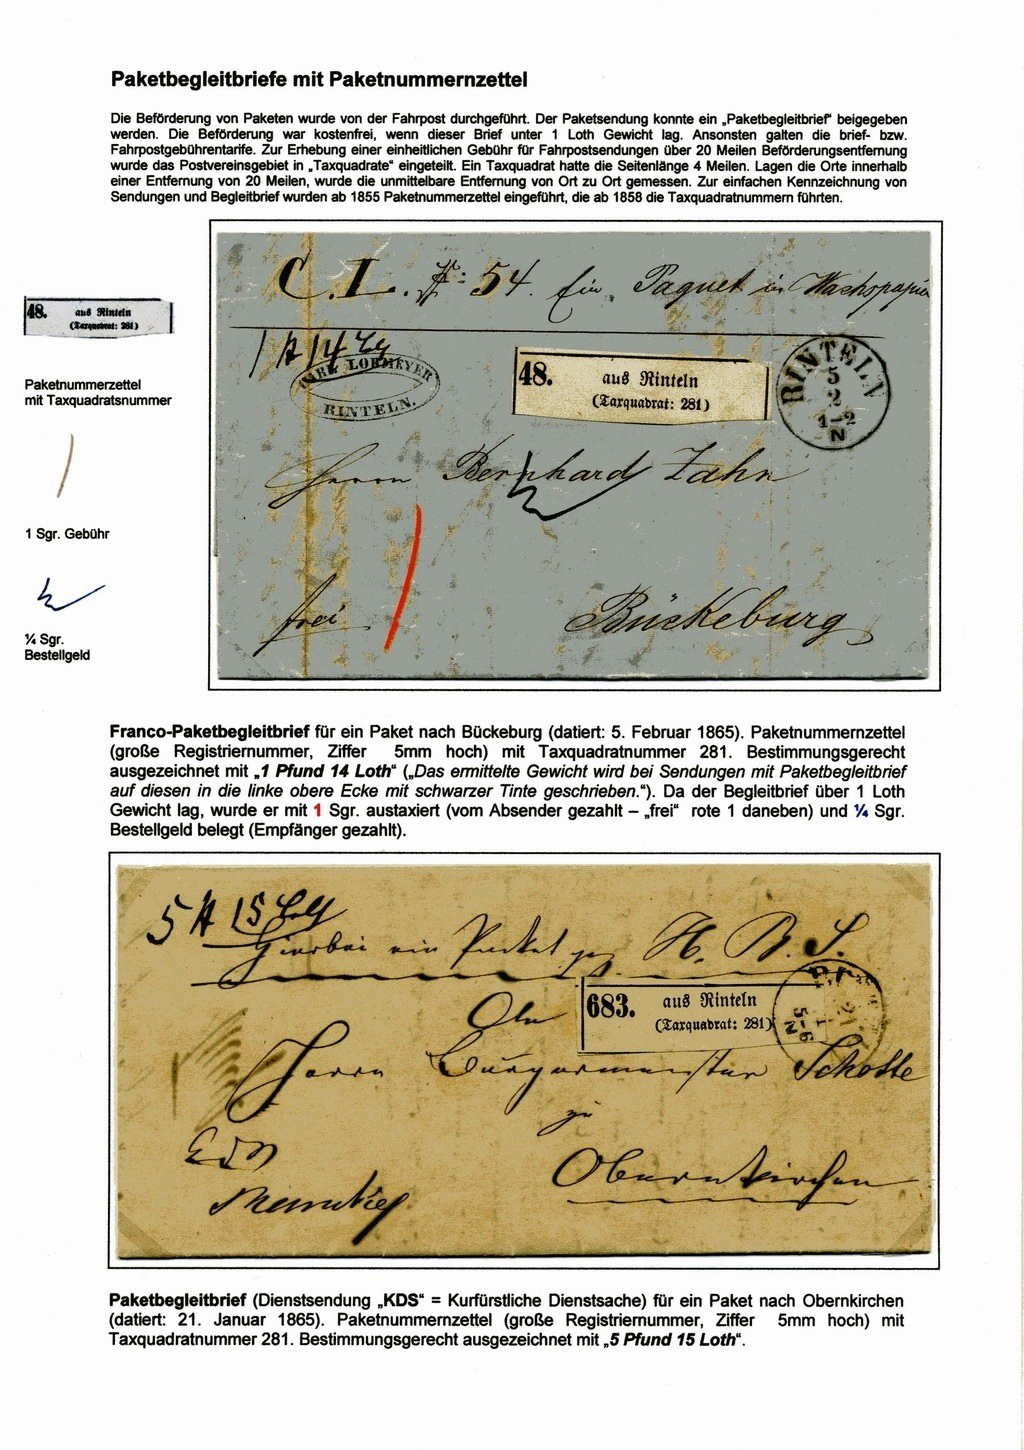 Paketbegleitbriefe mit Paketnummernzettel
Die Beförderung von Paketen wurde von der Fahrpost durchgeführt. Der Paketsendung konnte ein „Paketbegleitbrief“ beigegeben
werden. Die Beförderung war kostenfrei, wenn dieser Brief unter 1 Loth Gewicht lag. Ansonsten galten die brief- bzw.
Fahrpostgebührentarife. Zur Erhebung einer einheitlichen Gebühr für Fahrpostsendungen über 20 Meilen Beförderungsentfernung
wurde das Postvereinsgebiet in „Taxquadrate“ eingeteilt. Ein Taxquadrat hatte die Seitenlänge 4 Meilen. Lagen die Orte innerhalb
einer Entfernung von 20 Meilen, wurde die unmittelbare Entfernung von Ort zu Ort gemessen. Zur einfachen Kennzeichnung von
Sendungen und Begleitbrief wurden ab 1855 Paketnummerzettel eingeführt, die ab 1858 die Taxquadratnummern führten.
48. aus Rinteln
(Taxquadrat: 281)
Paketnummerzettel
mit Taxquadratsnummer
1 Sgr. Gebühr
¼ Sgr.
Bestellgeld
C. L. #: 54. Ein Paquet in Wachspapier
1 ℔ 14 Lg
CARL LOHMEYER
RINTELN.
48. aus Rinteln
(Taxquadrat: 281)
RINTELN
5
2
1-2
N
Herrn Bernhard Zahn
frei
Bückeburg
Franco-Paketbegleitbrief für ein Paket nach Bückeburg (datiert: 5. Februar 1865). Paketnummernzettel
(große Registriernummer, Ziffer 5mm hoch) mit Taxquadratnummer 281. Bestimmungsgerecht
ausgezeichnet mit „1 Pfund 14 Loth“ („Das ermittelte Gewicht wird bei Sendungen mit Paketbegleitbrief
auf diesen in die linke obere Ecke mit schwarzer Tinte geschrieben.“). Da der Begleitbrief über 1 Loth
Gewicht lag, wurde er mit 1 Sgr. austaxiert (vom Absender gezahlt – „frei“ rote 1 daneben) und ¼ Sgr.
Bestellgeld belegt (Empfänger gezahlt).
5 ℔ 15 Loth
Hierbei ein Packet H. B. S.
683. aus Rinteln
(Taxquadrat: 281)
21
1
5-6
N
Herrn Bürgermeister Schotte
zu
Obernkirchen
Paketbegleitbrief (Dienstsendung „KDS“ = Kurfürstliche Dienstsache) für ein Paket nach Obernkirchen
(datiert: 21. Januar 1865). Paketnummernzettel (große Registriernummer, Ziffer 5mm hoch) mit
Taxquadratnummer 281. Bestimmungsgerecht ausgezeichnet mit „5 Pfund 15 Loth“.